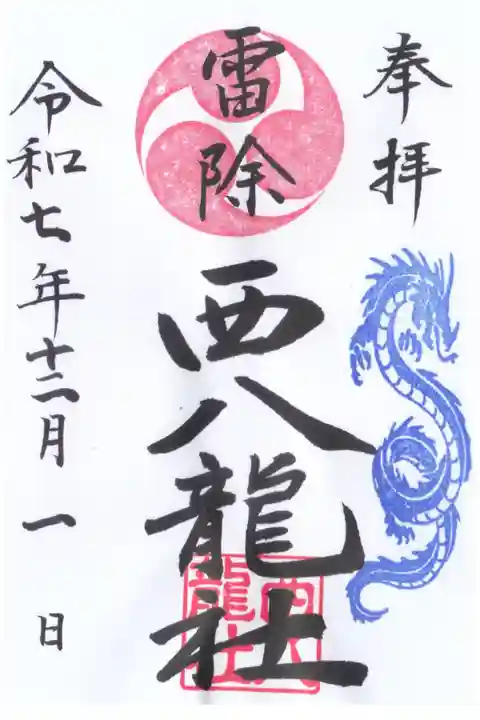 奉拝
雷除
西八龍社
西八
龍社
令和七年十二月一日